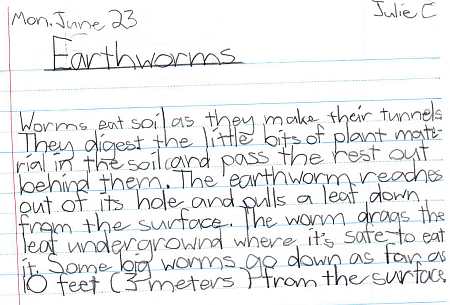 Mon. June 23 Julie C
Earthworms
Worms eat soil as they make their tunnels
They digest the little bits of plant mate-
rial in the soil and pass the rest out
behind them. The earthworm reaches
out of its hole and pulls a leaf down
from the surface. The worm drags the
leaf underground where it's safe to eat
it. Some big worms go down as far as
10 feet (3 meters) from the surface